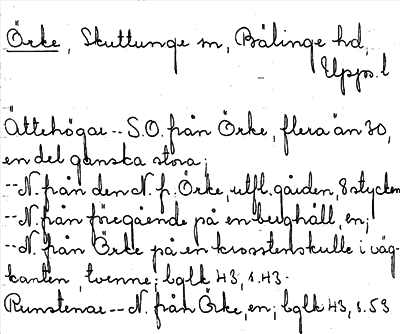 Örke, Skuttunge sn, Bälinge hd,
Upps. l
Ättehögar -- S.O. från Örke, flera än 30,
en del ganska stora;
-- N. från den N. f. Örke, utfl. gården, 8 stycken
-- N. från föregående på en berghäll, en;
-- N. från Örke på en krosstenskulle i väg-
kanten, tvenne; bglk 43, s. 43.
Runstenar -- N. från Örke, en; bglk 43, s. 53